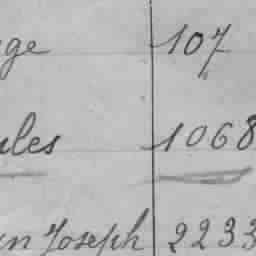 ge 107
ules 1068
n Joseph 2233